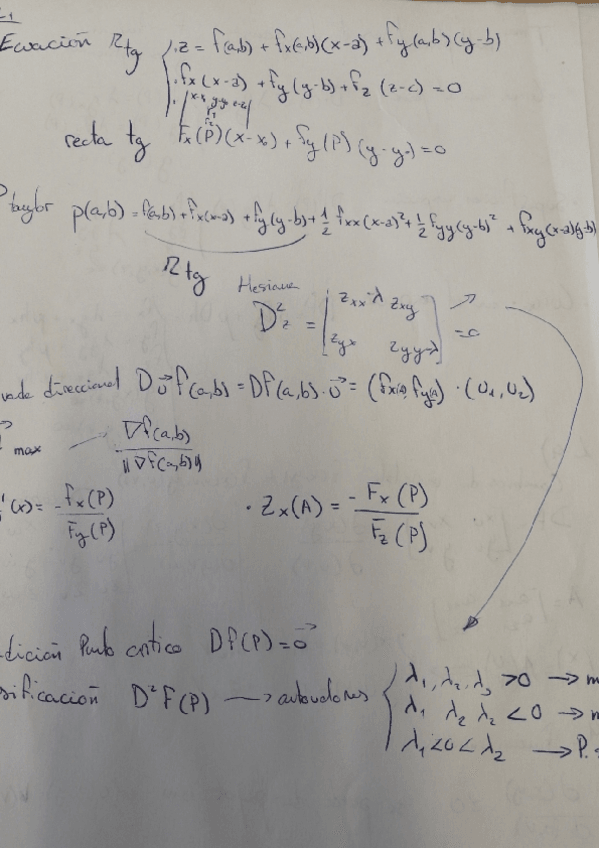 Ecuación π tg { · z = f(a,b) + fx(a,b)(x-a) + fy(a,b)(y-b)
· fx(x-a) + fy(y-b) + fz(z-c) = 0
recta tg Fx(P)(x-x₀) + fy(P)(y-y₀) = 0
taylor p(a,b) = f(a,b) + fx(x-a) + fy(y-b) + 1/2 fxx(x-a)² + 1/2 fyy(y-b)² + fxy(x-a)(y-b)
π tg
Hesiana
D²z = [ zxx-λ zxy
zyx zyy-λ ] = 0
vada direccional D_u⃗ f(a,b) = Df(a,b) · u⃗ = (fx(A), fy(A)) · (u₁, u₂)
max ∇f(a,b) / ||∇f(a,b)||
'(x) = -fx(P) / Fy(P) · Zx(A) = -Fx(P) / Fz(P)
dición Punto critico Df(P) = 0⃗
sificación D²F(P) → autovalores { λ₁, λ₂, λ₃ > 0 → m
λ₁ λ₂ λ₂ < 0 → m
λ₁ < 0 < λ₂ → P.